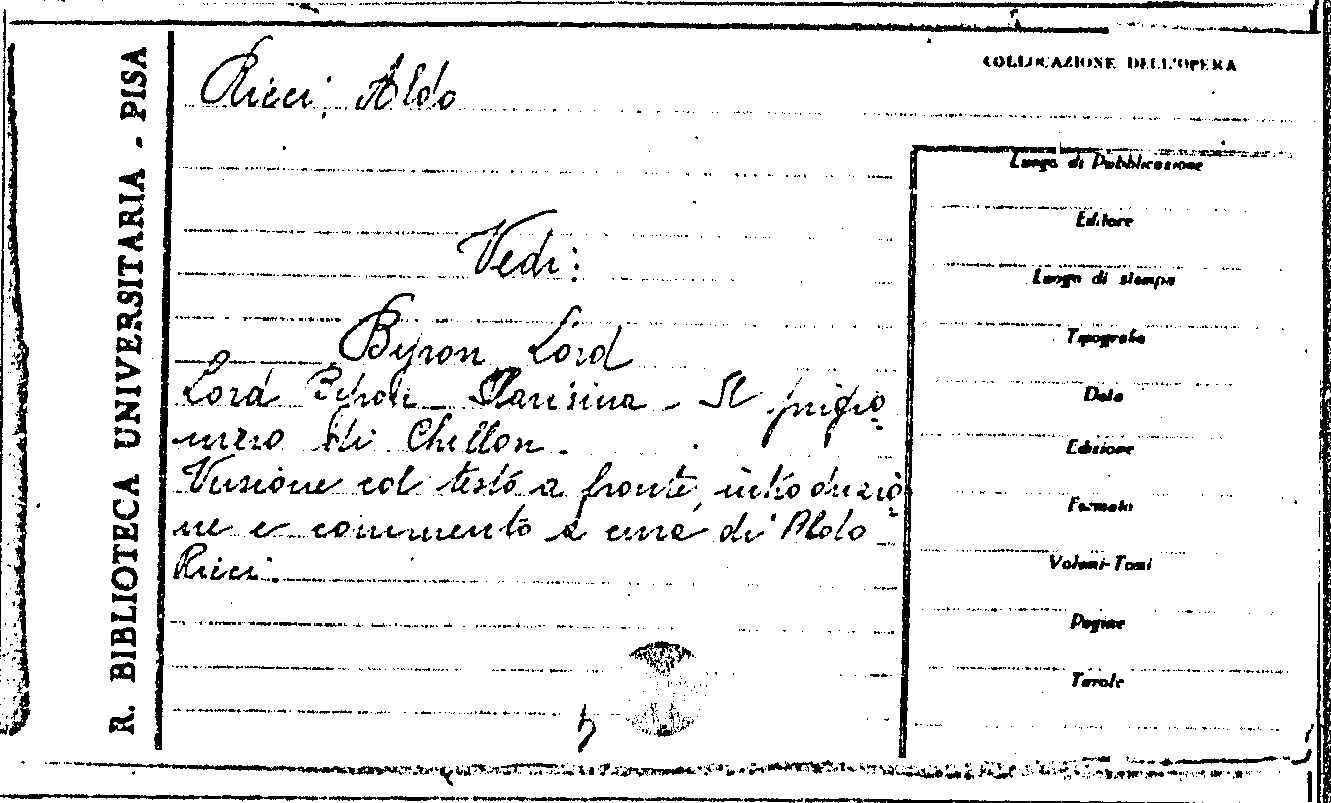 R. BIBLIOTECA UNIVERSITARIA - PISA
Ricci, Aldo
COLLOCAZIONE DELL'OPERA
Vedi:
Byron Lord
Lord Byron - Parisina - Il prigio-
niero di Chillon.
Versione col testo a fronte, introduzio-
ne e commento a cura di Aldo
Ricci.
Luogo di Pubblicazione
Editore
Luogo di stampa
Tipografia
Data
Edizione
Formato
Volumi-Tomi
Pagine
Tavole